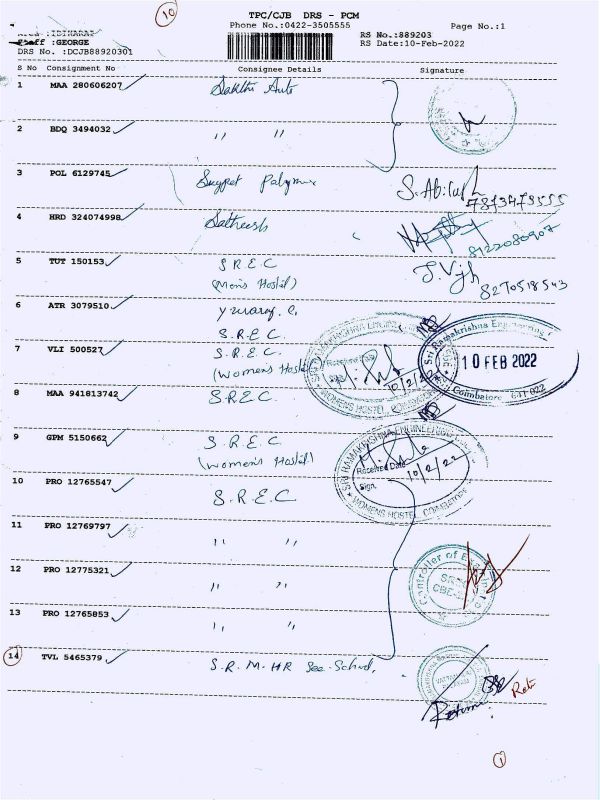 10
TPC/CJB DRS - PCM
Phone No.:0422-3505555 Page No.:1
RS No.:889203
Staff :GEORGE RS Date:10-Feb-2022
DRS No. :DCJB88920301
S No Consignment No Consignee Details Signature
1 MAA 280606207 Sakthi Auto
2 BDQ 3494032 " "
3 POL 6129745 Polymer S. Abi 7873473555
4 HRD 324074998 Satheesh 8122080907
5 TUT 150153 S.R.E.C J. Vijh
(Mens Hostel) 8270518543
6 ATR 3079510 Yuvaraj. R,
S.R.E.C.
7 VLI 500527 S.R.E.C. 10 FEB 2022
(Womens Hostel) 10/2/2
Sri Ramakrishna Engineering
Coimbatore 641 022
8 MAA 941813742 S.R.E.C.
9 GPM 5150662 S.R.E.C.
(Womens Hostel)
SRI RAMAKRISHNA ENGINEERING
Received Date
10/2/22
Sign.
WOMENS HOSTEL COIMBATORE
10 PRO 12765547 S.R.E.C
11 PRO 12769797 " "
12 PRO 12775321 " "
Controller of
13 PRO 12765853 " "
14 TVL 5465379 S.R.M. HR Sec. School,
1